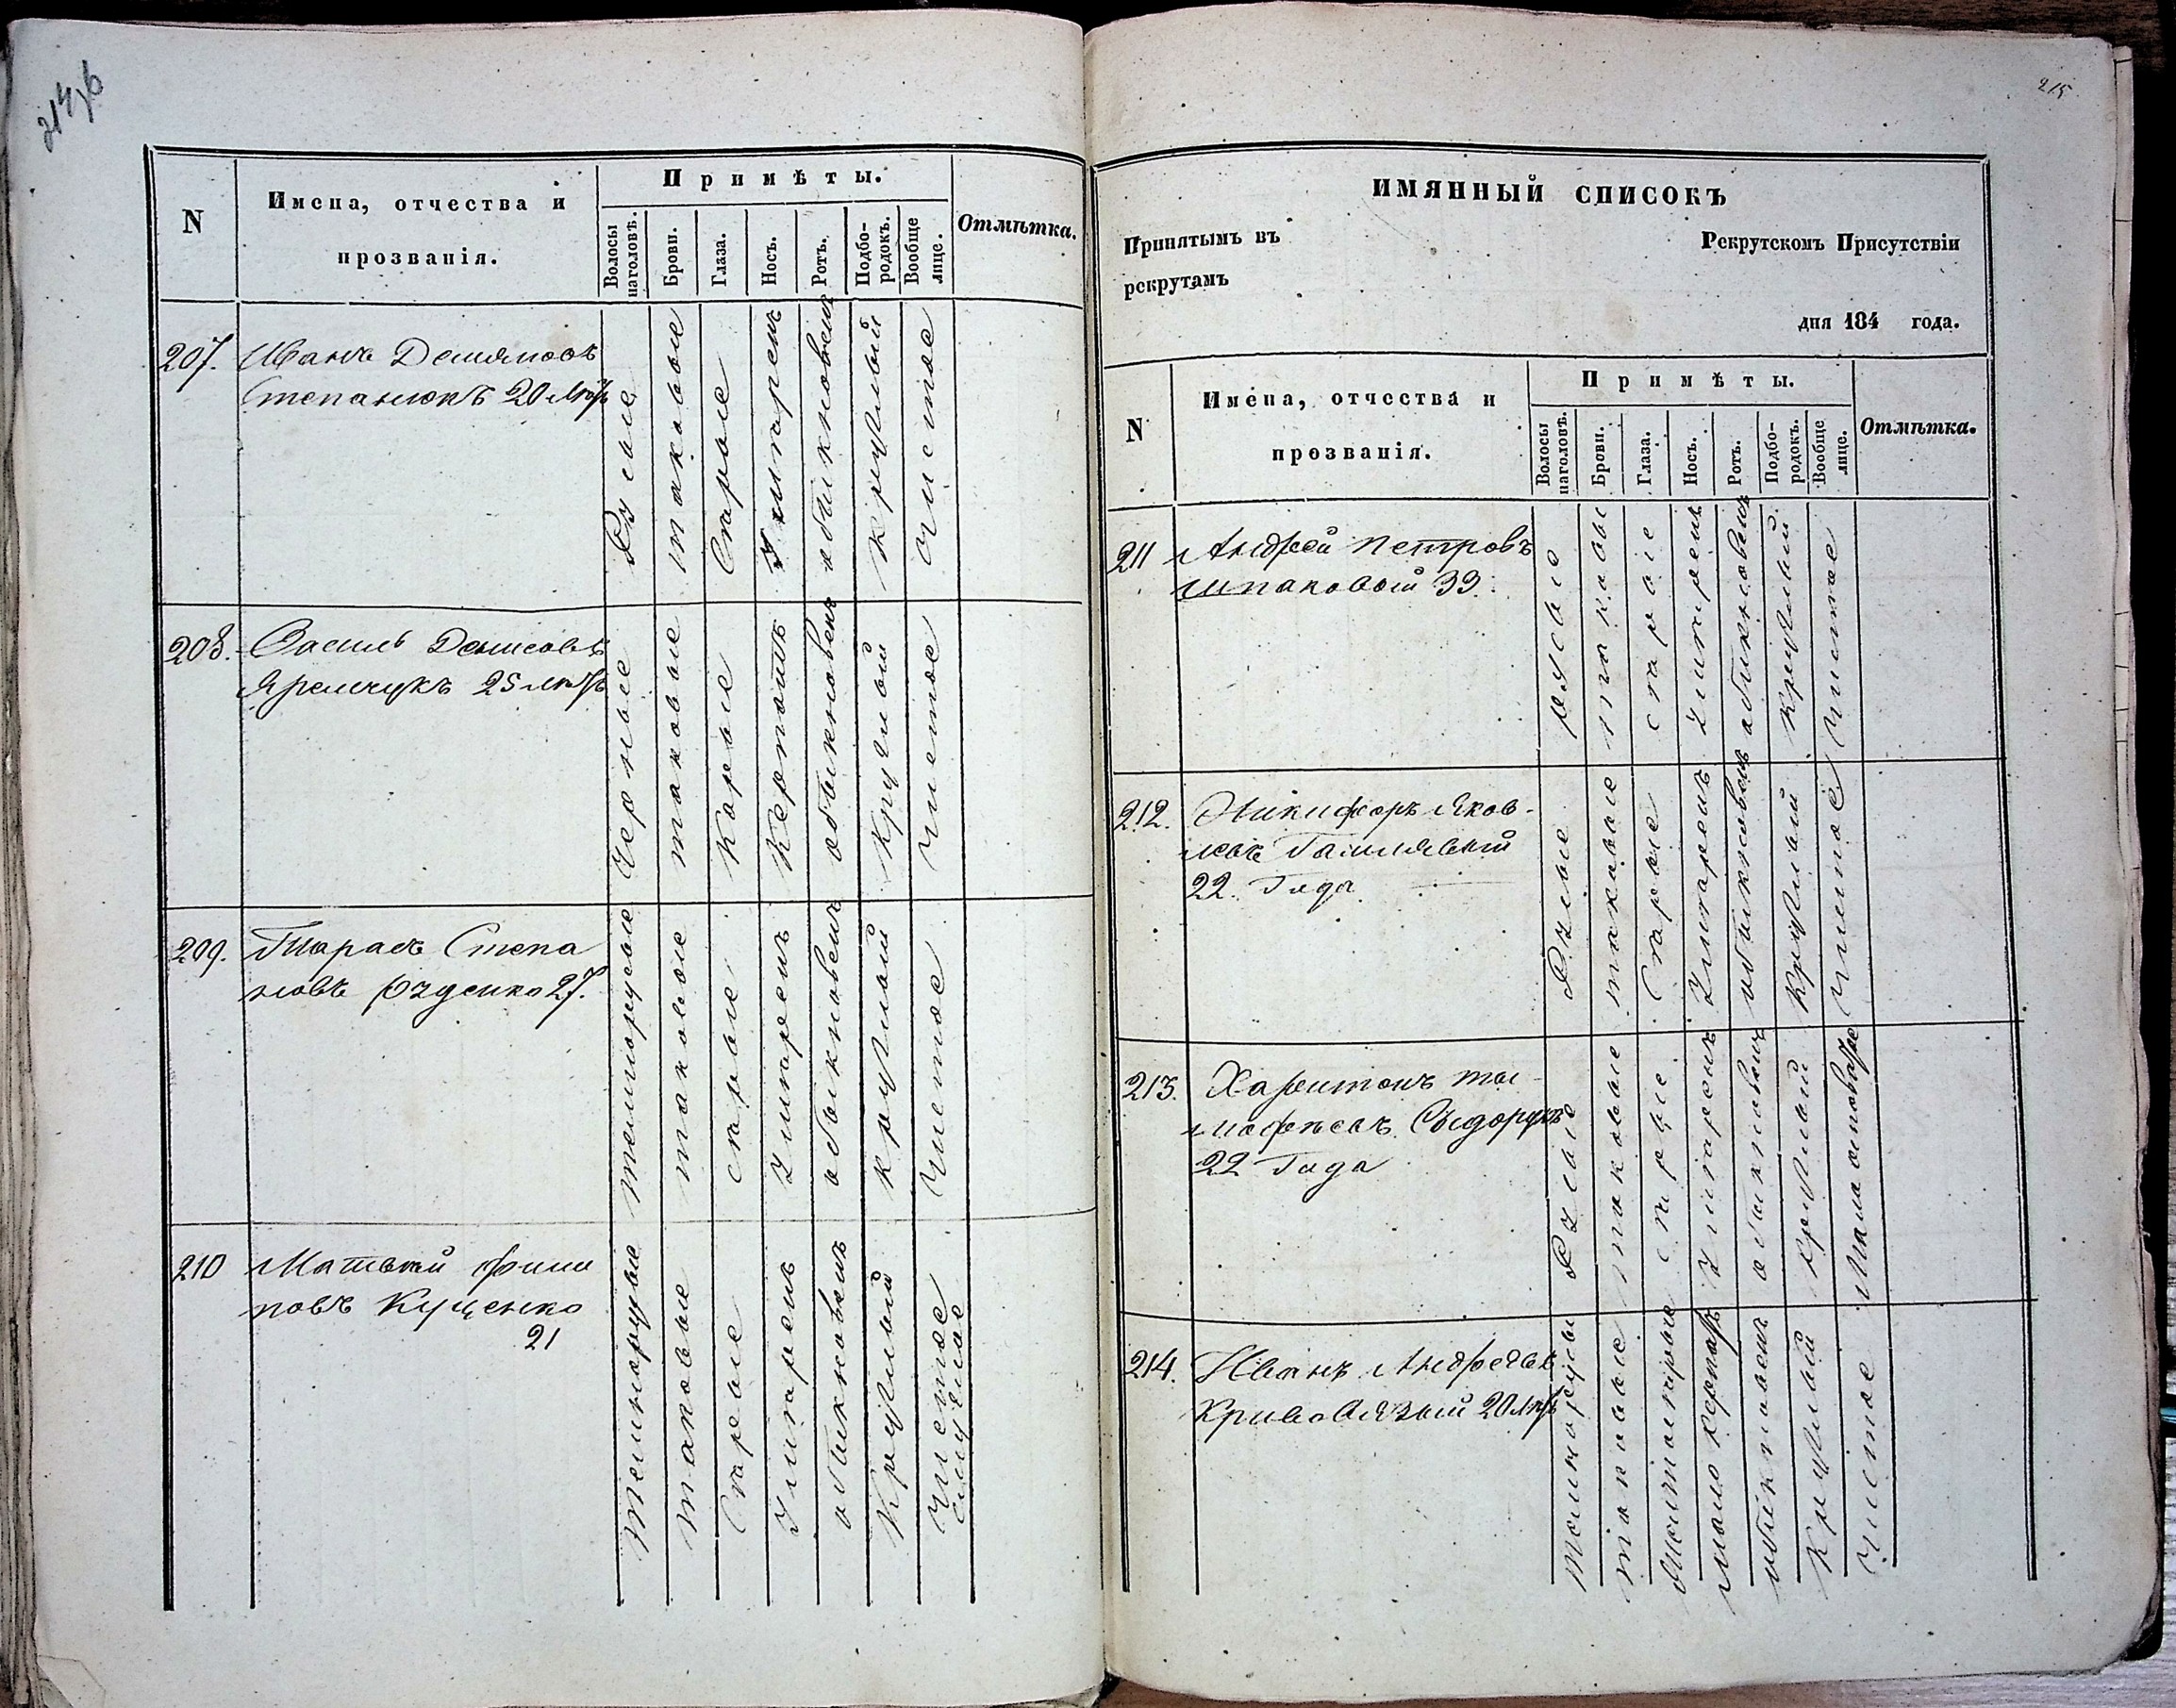 214/б
N
Имена, отчества и
прозванія.
Примѣты.
Волосы
наголовѣ.
Брови.
Глаза.
Носъ.
Ротъ.
Подбо-
родокъ.
Вообще
лице.
Отмѣтка.
207. Иванъ Демяновъ
Степанюкъ 20 лѣтъ
Русые
таковые
Серые
Умѣренъ
обикновенъ
Круглый
Чистое
208. Василь Денисовъ
Яремчукъ 25 лѣтъ
Черные
таковые
Карые
обыкновенъ
Круглый
Чистое
209. Тарасъ Степа
новъ 27.
темнорусые
таковые
серые
Умѣренъ
обыкновенъ
круглый
Чистое
210 Матвѣй Фили
повъ Куценко
21
Темнорусые
таковые
Серые
Умѣренъ
обикновенъ
Круглый
Чистое
215
ИМЯННЫЙ СПИСОКЪ
Принятымъ въ Рекрутскомъ Присутствіи
рекрутамъ
дня 184 года.
N
Имена, отчества и
прозванія.
Примѣты.
Волосы
наголовѣ.
Брови.
Глаза.
Носъ.
Ротъ.
Подбо-
родокъ.
Вообще
лице.
Отмѣтка.
211 Андрей Петровъ
Шпаковый 33.
русые
таковы
серые
Умѣренъ
обикновенъ
Круглый
Чистое
212. Никифоръ Яков-
левъ
22. Года
Русые
таковые
Серые
Умѣренъ
обикновенъ
Круглый
Чистое
213. Харитонъ
Сидорукъ
22 Года
Русые
таковые
серые
Умѣренъ
обикновенъ
Круглый
214. Иванъ Андреевъ
Кривовязый 20 лѣтъ
Темнорусы
таковые
обикновенъ
Круглый
Чистое